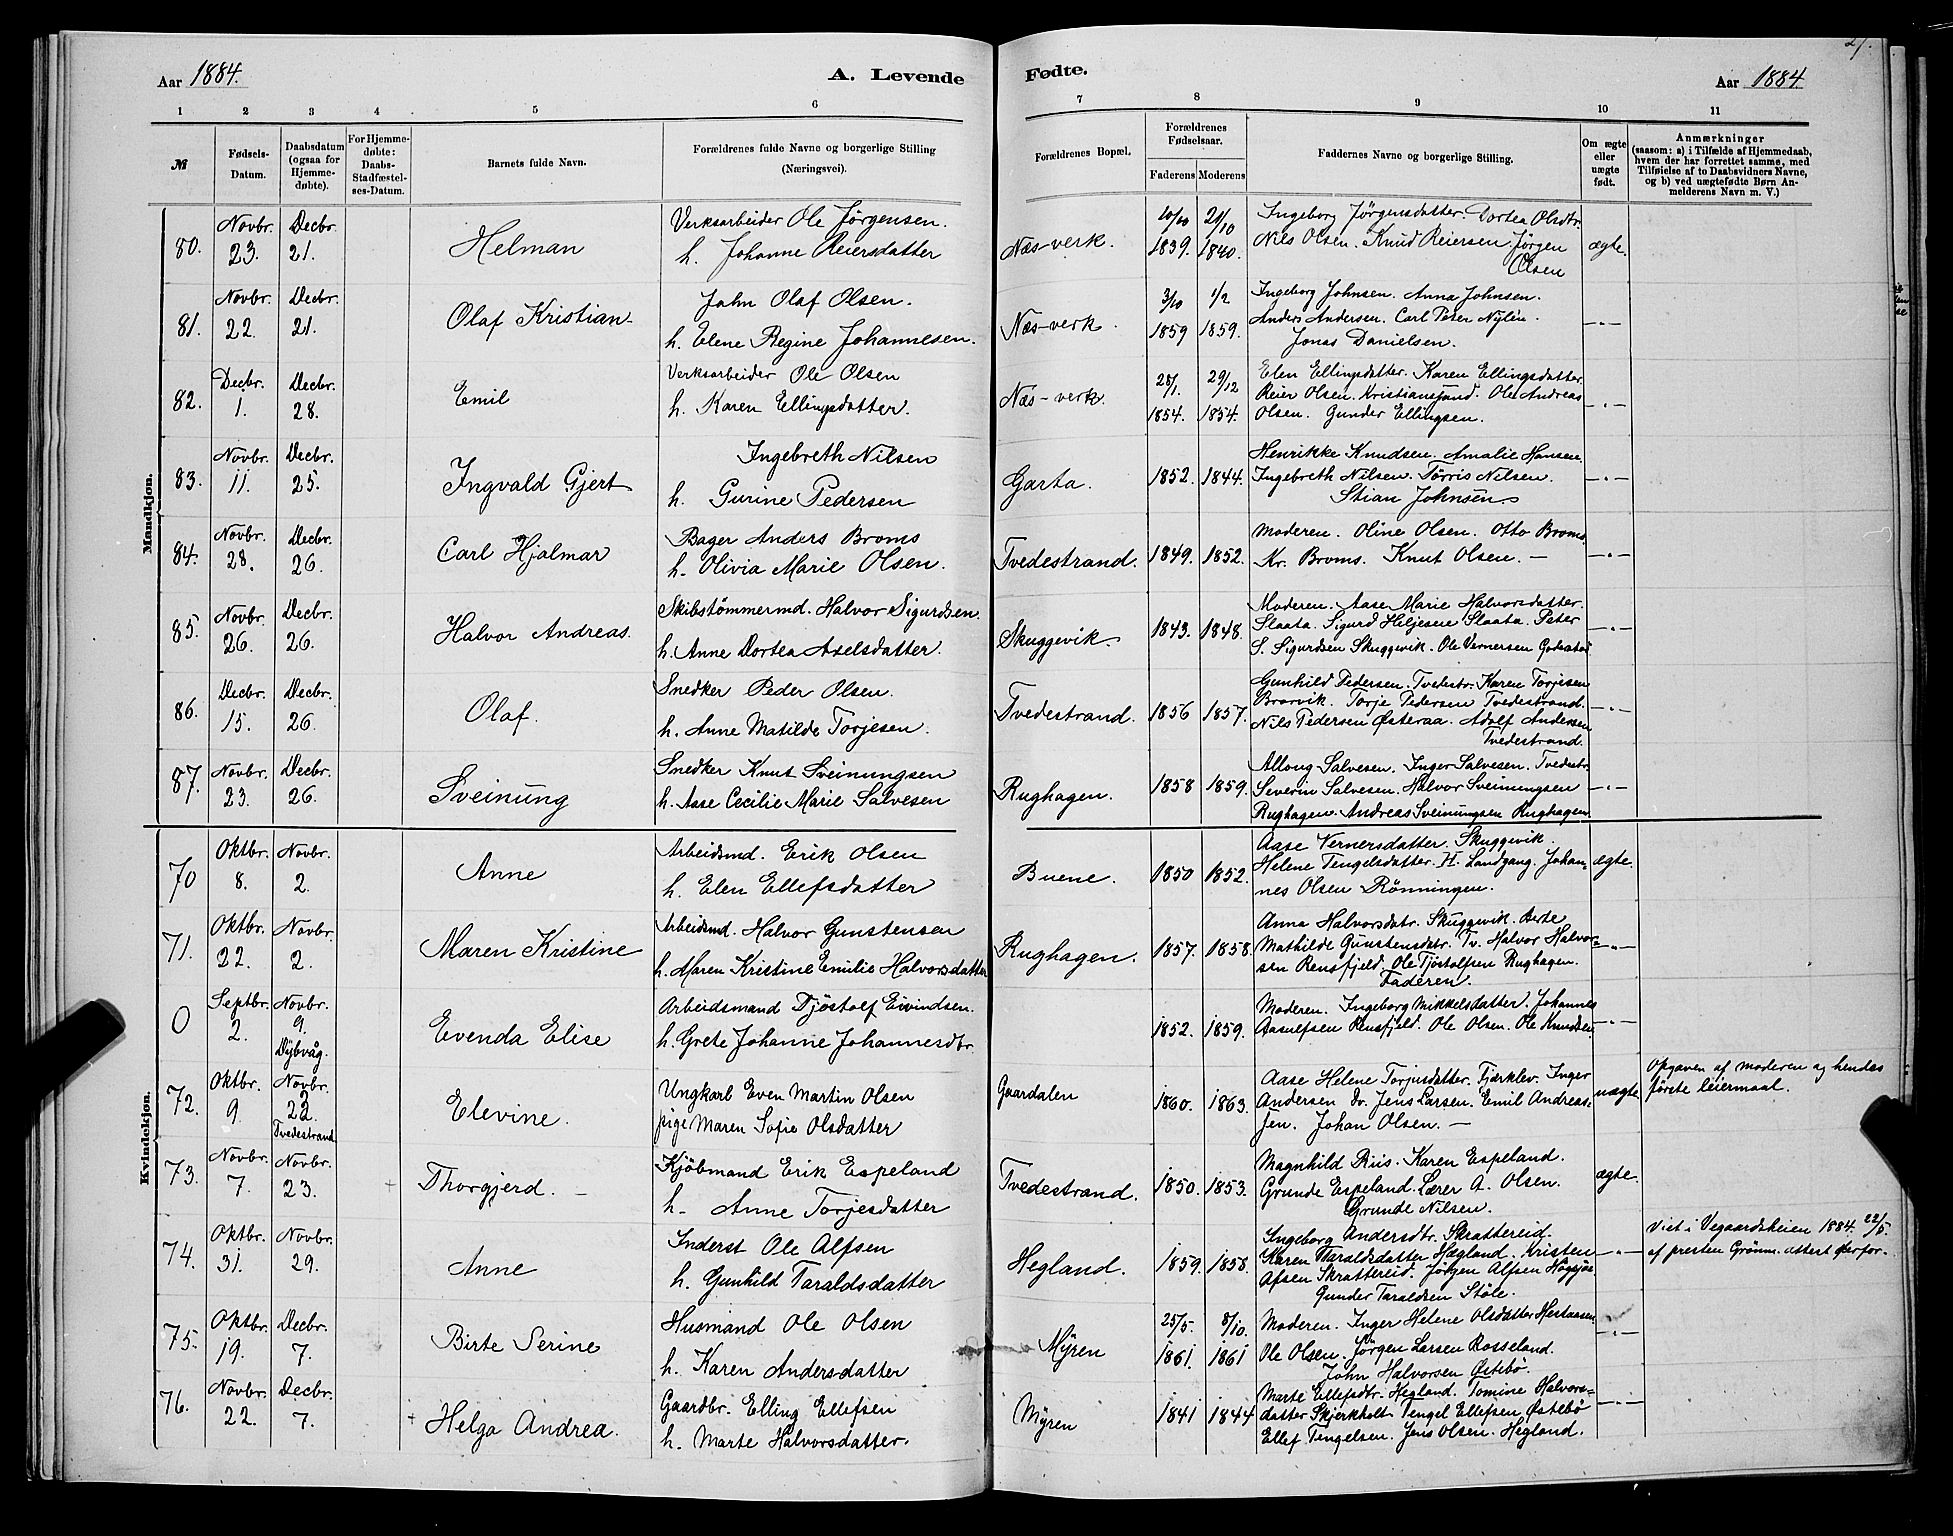 Aar 1884.
A. Levende
Fødte.
Aar 1884.
1 2 3 4 5 6 7 8 9 10 11
№
Fødsels-Datum.
Daabsdatum (ogsaa for Hjemme-døbte).
For Hjemme-døbte: Daabs-Stadfæstel-ses-Datum.
Barnets fulde Navn.
Forældrenes fulde Navne og borgerlige Stilling
(Næringsvei).
Forældrenes Bopæl.
Forældrenes Fødselsaar.
Faderens Moderens
Faddernes Navne og borgerlige Stilling.
Om ægte eller uægte født.
Anmærkninger
(saasom: a) i Tilfælde af Hjemmedaab,
hvem der har forrettet samme, med
Tilføielse af to Daabsvidners Navne,
og b) ved uægtefødte Børn An-
melderens Navn m. V.)
Mandkjøn.
80. Novbr. 23. Decbr. 21. Helman
Verksarbeider Ole Jørgensen.
h. Johanne Reiersdatter
Næs-verk. 10/10 1839. 21/10 1840.
Ingeborg Jørgensdatter. Dortea Olsdtr.
Nils Olsen. Knud Reiersen. Jørgen
Olsen
ægte.
81. Novbr. 22. Decbr. 21. Olaf Kristian
John Olaf Olsen.
h. Elene Regine Johannesen.
Næs-verk. 3/10 1859 1/2 1859.
Ingeborg Johnsen. Anna Johnsen.
Anders Andersen. Carl Peter Nylén.
Jonas Danielsen.
—"—
82. Decbr. 1. Decbr. 28. Emil
Verksarbeider Ole Olsen
h. Karen Ellingsdatter.
Næs-verk. 25/1. 1854. 29/12 1854.
Elen Ellingsdatter. Karen Ellingsdatter.
Reier Olsen. Kristiansund. Ole Andreas
Olsen. Gunder Ellingsen.
—"—
83. Novbr. 11. Decbr. 25. Ingvald Gjert
Ingebreth Nilsen
h. Gurine Pedersen
Garta. 1852. 1844.
Henrikke Knudsen. Amalie Hansen.
Ingebreth Nilsen. Tørris Nilsen.
Stian Johnsen
—"—
84. Novbr. 28. Decbr. 26. Carl Hjalmar
Bager Anders Broms
h. Olivia Marie Olsen.
Tvedestrand. 1849. 1852.
Moderen. Oline Olsen. Otto Broms
Kr. Broms. Knut Olsen. —
—"—
85. Novbr. 26. Decbr. 26. Halvor Andreas.
Skibstømmermd. Halvor Sigurdsen
h. Anne Dortea Axelsdatter.
Skuggevik. 1843. 1848.
Moderen. Aase Marie Halvorsdatter.
Slaata. Sigurd Heljesen Slaata. Peter
S. Sigurdsen Skuggevik. Ole Vernersen
—"—
86. Decbr. 15. Decbr. 26. Olaf.
Snedker Peder Olsen.
h. Anne Matilde Torjesen.
Tvedestrand. 1856 1857.
Gunhild Pedersen. Tvedestr. Karen Torjesen
Brorvik. Torje Pedersen Tvedestrand.
Nils Pedersen Østeraa. Adolf Andersen
Tvedestrand.
—"—
87. Novbr. 23. Decbr. 26. Sveinung
Snedker Knut Sveinungsen
h. Aase Cecilie Marie Salvesen
Rughagen. 1858 1859.
Allong Salvesen. Inger Salvesen. Tvedestr.
Severin Salvesen. Halvor Sveinungsen
Rughagen. Andreas Sveinungsen Rughagen.
—"—
Kvindekjøn.
70 Oktbr. 8. Novbr. 2. Anne
Arbeidsmd. Erik Olsen
h. Elen Ellefsdatter
Buene. 1850 1852.
Aase Vernersdatter. Skuggevik.
Helene Tengelsdatter. H. Landgang. Johan-
nes Olsen Rønningen.
ægte.
71. Oktbr. 22. Novbr. 2. Maren Kristine
Arbeidsmd. Halvor Gunstensen
h. Maren Kristine Emilie Halvorsdatter
Rughagen. 1857. 1858.
Anna Halvorsdatr. Skuggevik. Berte
Mathilde Gunstensdatr. Tv. Halvor Halvor-
sen Rensfjeld. Ole Tjøstolfsen Rughagen.
Faderen.
—"—
0 Septbr. 2. Novbr. 9. Dybvåg. Evenda Elise
Arbeidsmand Tjøstolf Eivindsen.
h. Grete Johanne Johannesdtr.
1852. 1859.
Moderen. Ingeborg Mikkelsdatter. Johannes
Aanulfsen Rensfjeld. Ole Olsen. Ole Knudsen
—"—
72. Oktbr. 9. Novbr. 22. Tvedestrand Elevine.
Ungkarl Even Martin Olsen
pige Maren Sofie Olsdatter
Gaardalen 1860. 1863.
Aase Helene Torjusdatter. Fjærklev. Inger
Andersen do. Jens Larsen. Emil Andreas-
sen. Johan Olsen. —
uægte.
Opgaven af moderen og hendes
første leiermaal.
73. Novbr. 7. Novbr. 23. Thorgjerd. —
Kjøbmand Erik Espeland
h. Anne Torjesdatter
Tvedestrand. 1850. 1853.
Magnhild Riis. Karen Espeland.
Grunde Espeland. Lærer A. Olsen.
Grunde Nilsen.
ægte.
74. Oktbr. 31. Novbr. 29. Anne
Inderst Ole Alfsen
h. Gunhild Taraldsdatter
Hegland. 1859. 1858.
Ingeborg Andersdtr. Skrattereid.
Karen Taraldsdatter Hegland. Kristen
Alfsen Skrattereid. Jørgen Alfsen
Gunder Taraldsen Støle.
—"—
Viet i Vegaardsheien 1884. 22/5.
af presten Grønn. attest derfor.
75. Oktbr. 19. Decbr. 7. Birte Serine
Husmand Ole Olsen
h. Karen Andersdatter
Myren 25/5. 1861. 8/10. 1861
Moderen. Inger Helene Olsdatter
Ole Olsen. Jørgen Larsen Rosseland.
John Halvorsen Østebø.
—"—
76. Novbr. 22. Decbr. 7. Helga Andrea.
Gaardbr. Elling Ellefsen
h. Marte Halvorsdatter.
Myren 1841 1844
Marte Ellefsdtr. Hegland. Tomine Halvors-
datter Skjerkholt. Tengel Ellefsen Østebø
Ellef Tengelsen. Jens Olsen. Hegland.
—"—